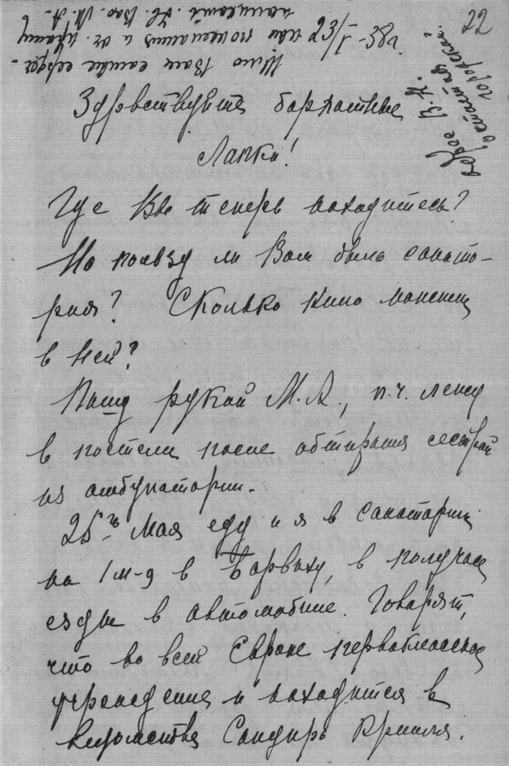 22
23/V-38г.
Здравствуйте бархатные
Лапки!
Где Вы теперь находитесь?
На пользу ли Вам была санато-
рия? Сколько кило
в ней?
Пишу рукой М.А., п.ч. лежу
в постели после обтирания сестрой
из амбулатории.
25го Мая еду и я в санаторию
на 1 м-ц в Барвиху, в получасе
езды в автомобиле. Говорят,
что во всей Европе первоклассное
учреждение и находится в
ведомстве Санупр Кремля.